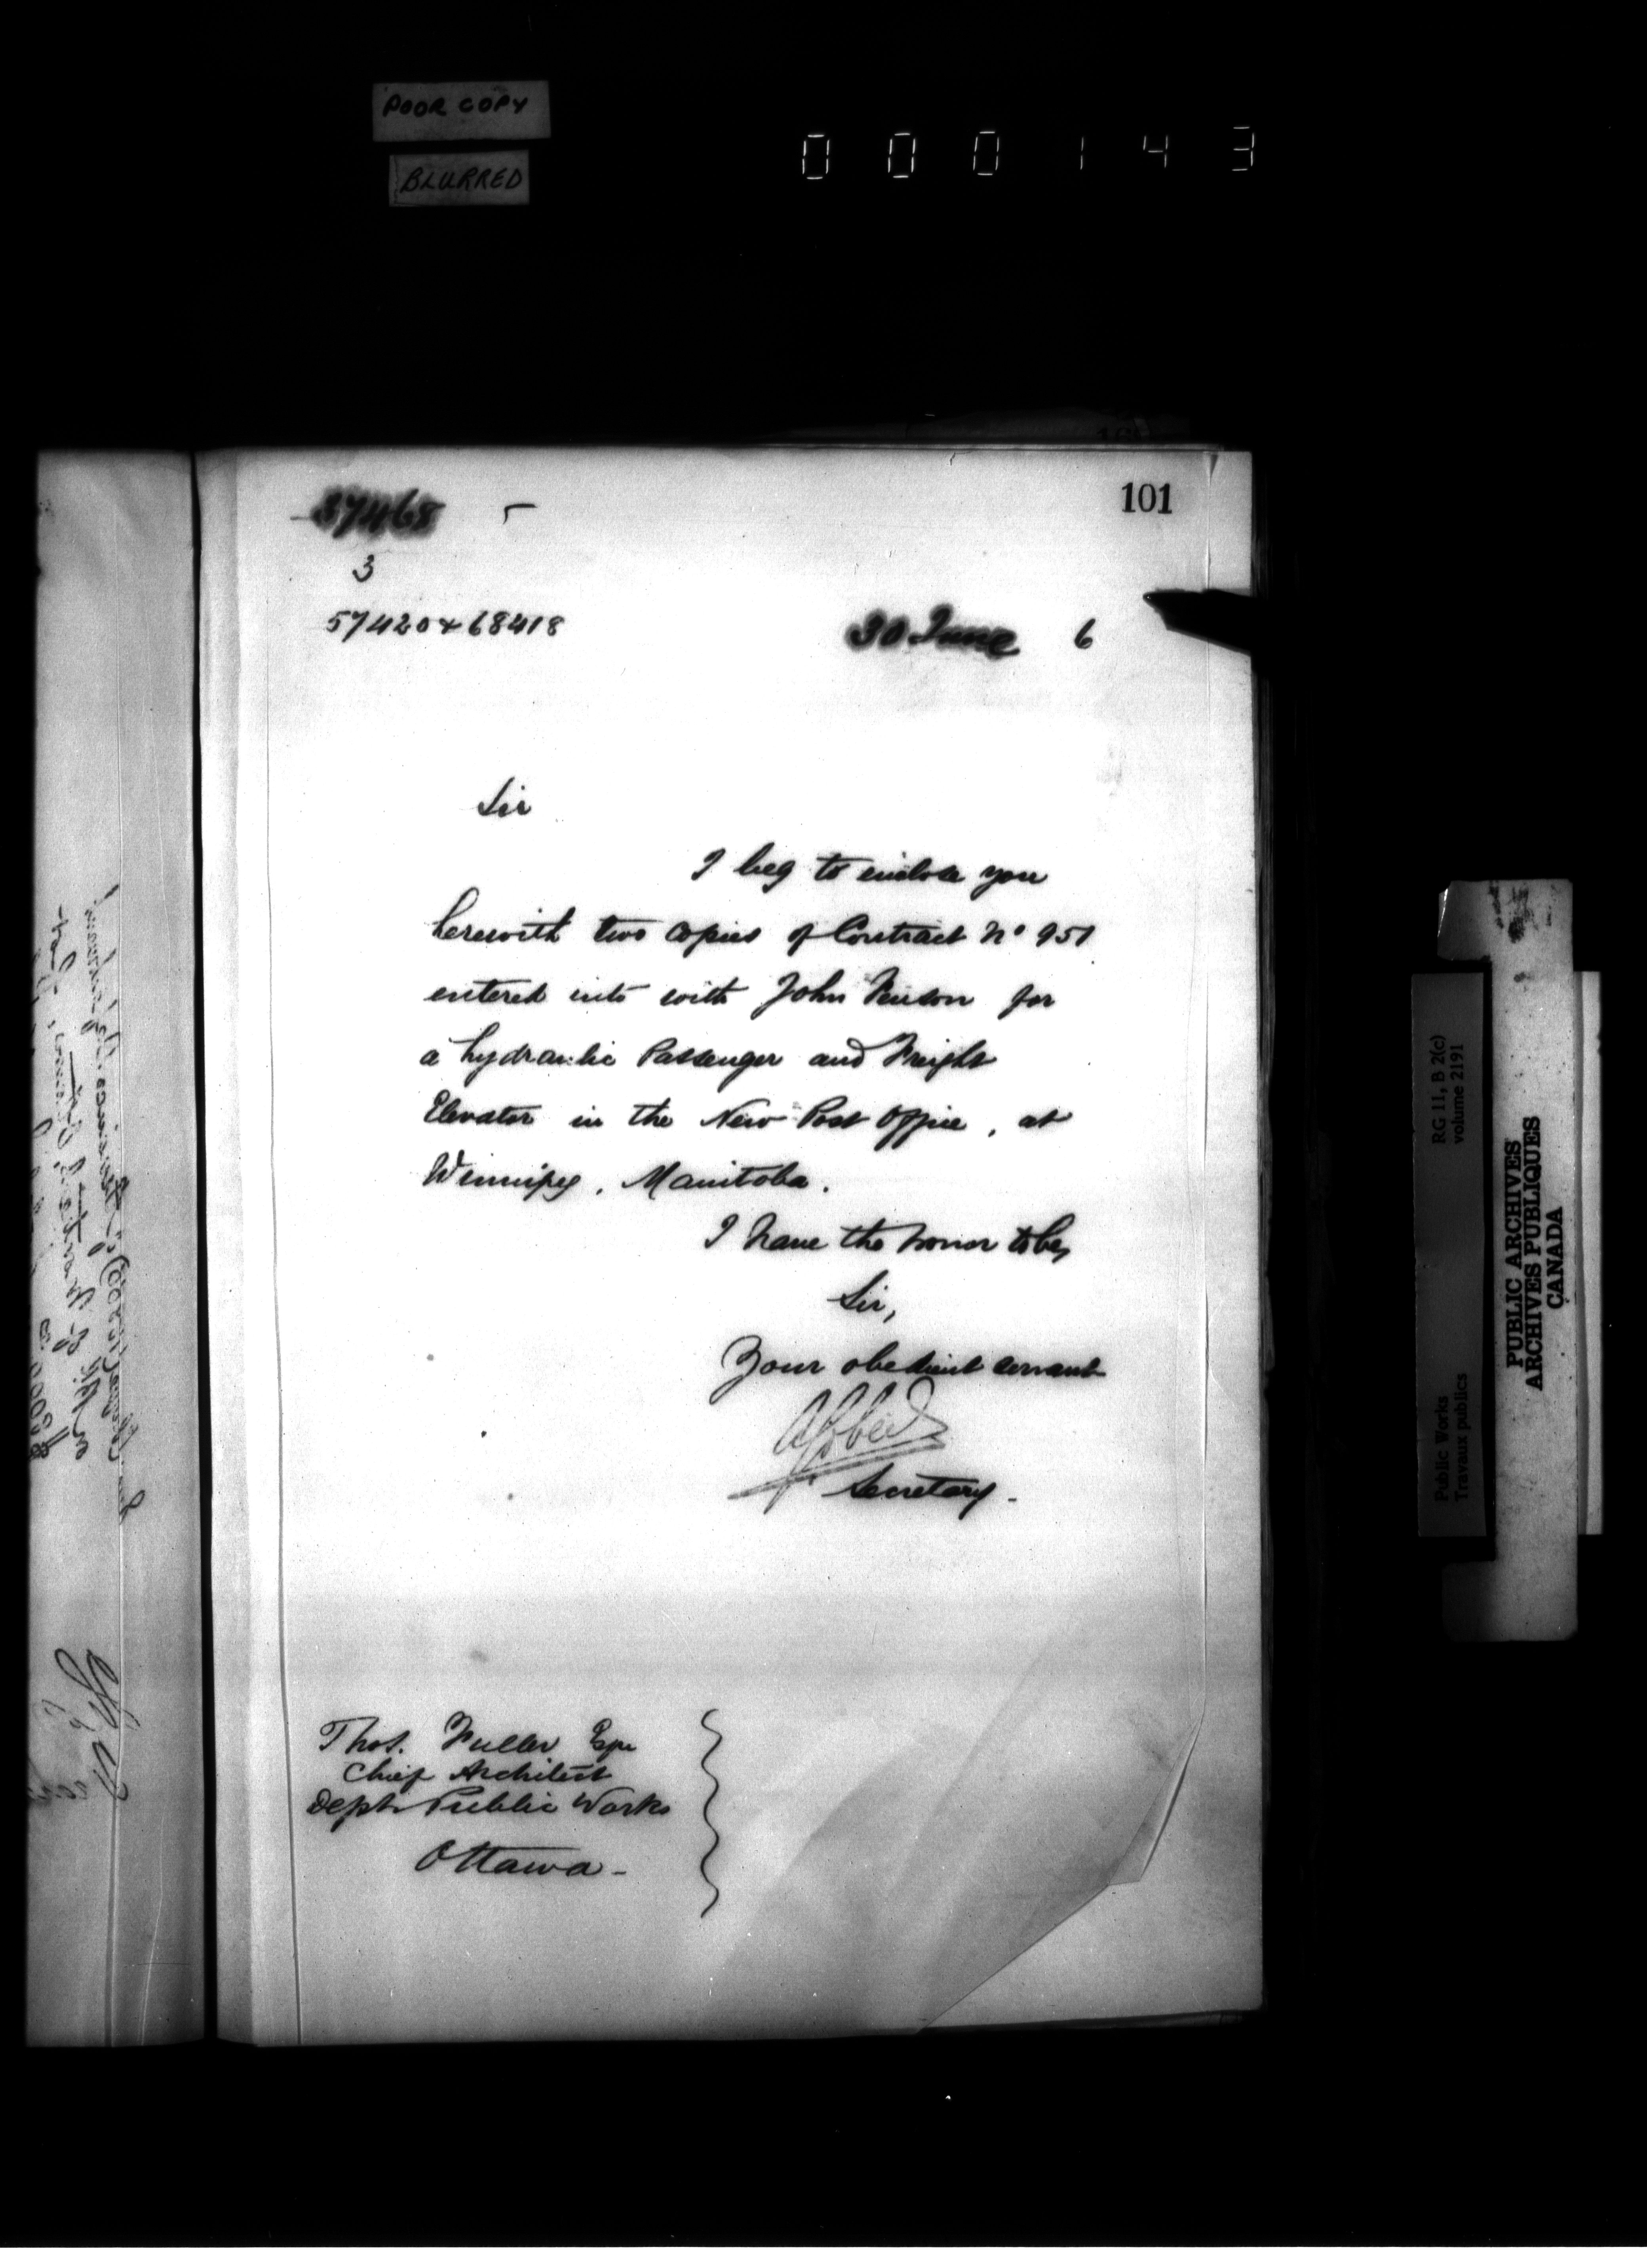 POOR COPY
BLURRED
000143
101
37468
3
57420 & 68418
30 June 6
Sir
I beg to enclose you
herewith two copies of Contract No 951
entered into with John Fenson for
a hydraulic Passenger and Freight
Elevator in the New Post Office, at
Winnipeg, Manitoba.
I have the honor to be,
Sir,
Your obedient servant
Secretary.
Thos. Fuller Esqr
Chief Architect
Dept. Public Works
Ottawa -
Public Works
Travaux publics
RG 11, B 2(c)
volume 2191
PUBLIC ARCHIVES
ARCHIVES PUBLIQUES
CANADA